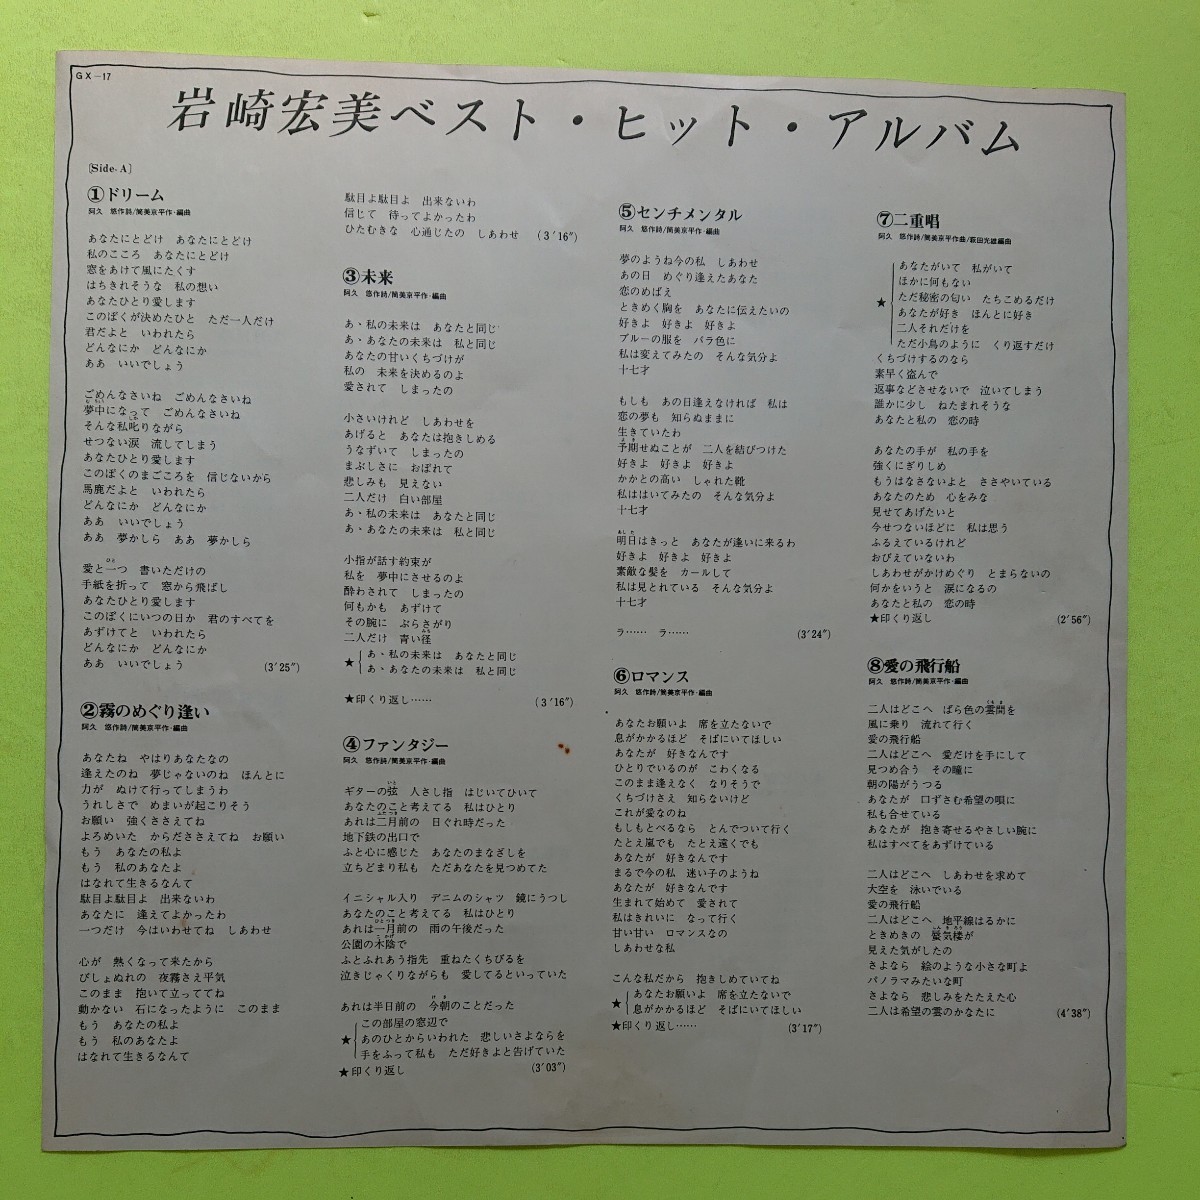 GX-17
岩崎宏美ベスト・ヒット・アルバム
[Side-A]
①ドリーム
阿久 悠作詩/筒美京平作・編曲
あなたにとどけ あなたにとどけ
私のこころ あなたにとどけ
窓をあけて風にたくす
はちきれそうな 私の想い
あなたひとり愛します
このぼくが決めたひと ただ一人だけ
君だよと いわれたら
どんなにか どんなにか
ああ いいでしょう
ごめんなさいね ごめんなさいね
夢中になって ごめんなさいね
そんな私叱りながら
せつない涙 流してしまう
あなたひとり愛します
このぼくのまごころを 信じないから
馬鹿だよと いわれたら
どんなにか どんなにか
ああ いいでしょう
ああ 夢かしら ああ 夢かしら
愛と一つ 書いただけの
手紙を折って 窓から飛ばし
あなたひとり愛します
このぼくにいつの日か 君のすべてを
あずけてと いわれたら
どんなにか どんなにか
ああ いいでしょう (3′25″)
②霧のめぐり逢い
阿久 悠作詩/筒美京平作・編曲
あなたね やはりあなたなの
逢えたのね 夢じゃないのね ほんとに
力が ぬけて行ってしまうわ
うれしさで めまいが起こりそう
お願い 強くささえてね
よろめいた からだささえてね お願い
もう あなたの私よ
もう 私のあなたよ
はなれて生きるなんて
駄目よ駄目よ 出来ないわ
あなたに 逢えてよかったわ
一つだけ 今はいわせてね しあわせ
心が 熱くなって来たから
びしょぬれの 夜霧さえ平気
このまま 抱いて立っててね
動かない 石になったように このまま
もう あなたの私よ
もう 私のあなたよ
はなれて生きるなんて
駄目よ駄目よ 出来ないわ
信じて 待ってよかったわ
ひたむきな 心通じたの しあわせ (3′16″)
③未来
阿久 悠作詩/筒美京平作・編曲
あゝ私の未来は あなたと同じ
あゝあなたの未来は 私と同じ
あなたの甘いくちづけが
私の 未来を決めるのよ
愛されて しまったの
小さいけれど しあわせを
あげると あなたは抱きしめる
うなずいて しまったの
まぶしさに おぼれて
悲しみも 見えない
二人だけ 白い部屋
あゝ私の未来は あなたと同じ
あゝあなたの未来は 私と同じ
小指が話す約束が
私を 夢中にさせるのよ
酔わされて しまったの
何もかも あずけて
その腕に ぶらさがり
二人だけ 青い径
★あゝ私の未来は あなたと同じ
あゝあなたの未来は 私と同じ
★印くり返し…… (3′16″)
④ファンタジー
阿久 悠作詩/筒美京平作・編曲
ギターの弦 人さし指 はじいてひいて
あなたのこと考えてる 私はひとり
あれは二月前の 日ぐれ時だった
地下鉄の出口で
ふと心に感じた あなたのまなざしを
立ちどまり私も ただあなたを見つめてた
イニシャル入り デニムのシャツ 鏡にうつし
あなたのこと考えてる 私はひとり
あれは一月前の 雨の午後だった
公園の木陰で
ふとふれあう指先 重ねたくちびるを
泣きじゃくりながらも 愛してるといっていた
あれは半日前の 今朝のことだった
★この部屋の窓辺で
あのひとからいわれた 悲しいさよならを
手をふって私も ただ好きよと告げていた
★印くり返し (3′03″)
⑤センチメンタル
阿久 悠作詩/筒美京平作・編曲
夢のようね今の私 しあわせ
あの日 めぐり逢えたあなた
恋のめばえ
ときめく胸を あなたに伝えたいの
好きよ 好きよ 好きよ
ブルーの服を バラ色に
私は変えてみたの そんな気分よ
十七才
もしも あの日逢えなければ 私は
恋の夢も 知らぬままに
生きていたわ
予期せぬことが 二人を結びつけた
好きよ 好きよ 好きよ
かかとの高い しゃれた靴
私ははいてみたの そんな気分よ
十七才
明日はきっと あなたが逢いに来るわ
好きよ 好きよ 好きよ
素敵な髪を カールして
私は見とれている そんな気分よ
十七才
ラ…… ラ…… (3′24″)
⑥ロマンス
阿久 悠作詩/筒美京平作・編曲
あなたお願いよ 席を立たないで
息がかかるほど そばにいてほしい
あなたが 好きなんです
ひとりでいるのが こわくなる
このまま逢えなく なりそうで
くちづけさえ 知らないけど
これが愛なのね
もしもとべるなら とんでついて行く
たとえ嵐でも たとえ遠くでも
あなたが 好きなんです
まるで今の私 迷い子のようね
あなたが 好きなんです
生まれて始めて 愛されて
私はきれいに なって行く
甘い甘い ロマンスなの
しあわせな私
こんな私だから 抱きしめていてね
★あなたお願いよ 席を立たないで
息がかかるほど そばにいてほしい
★印くり返し…… (3′17″)
⑦二重唱
阿久 悠作詩/筒美京平作曲/萩田光雄編曲
★あなたがいて 私がいて
ほかに何もない
ただ秘密の匂い たちこめるだけ
あなたが好き ほんとに好き
二人それだけを
ただ小鳥のように くり返すだけ
くちづけするのなら
素早く盗んで
返事などさせないで 泣いてしまう
誰かに少し ねたまれそうな
あなたと私の 恋の時
あなたの手が 私の手を
強くにぎりしめ
もうはなさないよと ささやいている
あなたのため 心をみな
見せてあげたいと
今せつないほどに 私は思う
ふるえているけれど
おびえていないわ
しあわせがかけめぐり とまらないの
何かをいうと 涙になるの
あなたと私の 恋の時
★印くり返し (2′56″)
⑧愛の飛行船
阿久 悠作詩/筒美京平作・編曲
二人はどこへ ばら色の雲間を
風に乗り 流れて行く
愛の飛行船
二人はどこへ 愛だけを手にして
見つめ合う その瞳に
朝の陽がうつる
あなたが 口ずさむ希望の唄に
私も合せている
あなたが 抱き寄せるやさしい腕に
私はすべてをあずけている
二人はどこへ しあわせを求めて
大空を 泳いでいる
愛の飛行船
二人はどこへ 地平線はるかに
ときめきの 蜃気楼が
見えた気がしたの
さよなら 絵のような小さな町よ
パノラマみたいな町
さよなら 悲しみをたたえた心
二人は希望の雲のかなたに (4′38″)